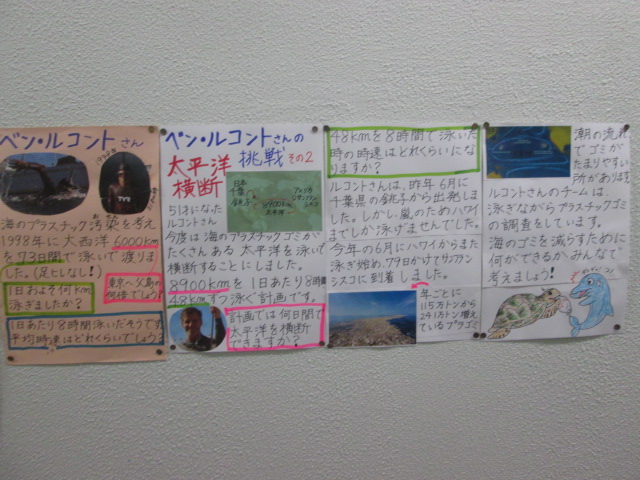 ベン・ルコントさん
海のプラスチック汚染を考え
1998年に大西洋6000kmを
を73日間で泳いで渡りまし
た。(足ヒレなし!)
1日およそ何km
泳ぎましたか?
東京〜父島の
何倍でしょう?
1日あたり8時間泳いだそうです
平均時速はどれくらいでしょう?
ベン・ルコントさんの
太平洋
横断
挑戦 その2
日本
千葉
銚子
8900km
太平洋
アメリカ
サンフランシスコ
51才になった
ルコントさん
今度は海のプラスチックゴミが
たくさんある太平洋を泳いで
横断することにしました。
8900kmを1日あたり8時間
48kmずつ泳ぐ計画です。
計画では何日間で
太平洋を横断
できますか?
48kmを8時間で泳いだ
時の時速はどれくらいにな
りますか?
ルコントさんは、昨年6月に
千葉県の銚子から出発しま
した。しかし、嵐のためハワイ
までしか泳げませんでした。
今年の6月にハワイからまた
泳ぎ始め、79日かけてサンフラン
シスコに到着しました。
年ごとに
115万トンから
241万トン増え
ているプラゴミ
潮の流れ
でゴミが
たまりやすい
所があります
ルコントさんのチームは、
泳ぎながらプラスチックゴミ
の調査をしています。
海のゴミを減らすために
何ができるかみんなで
考えましょう!